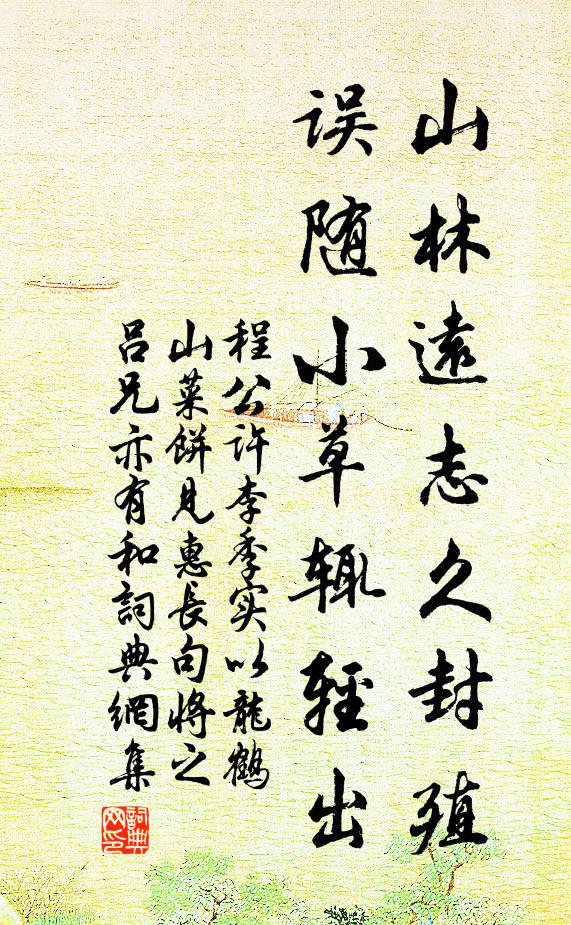 山林遠志久封殖
误随小草辄輕出
程公许李季实以龍鶴
山菜餅見惠長句將之
吕兄亦有和詞典網集
詞典网印